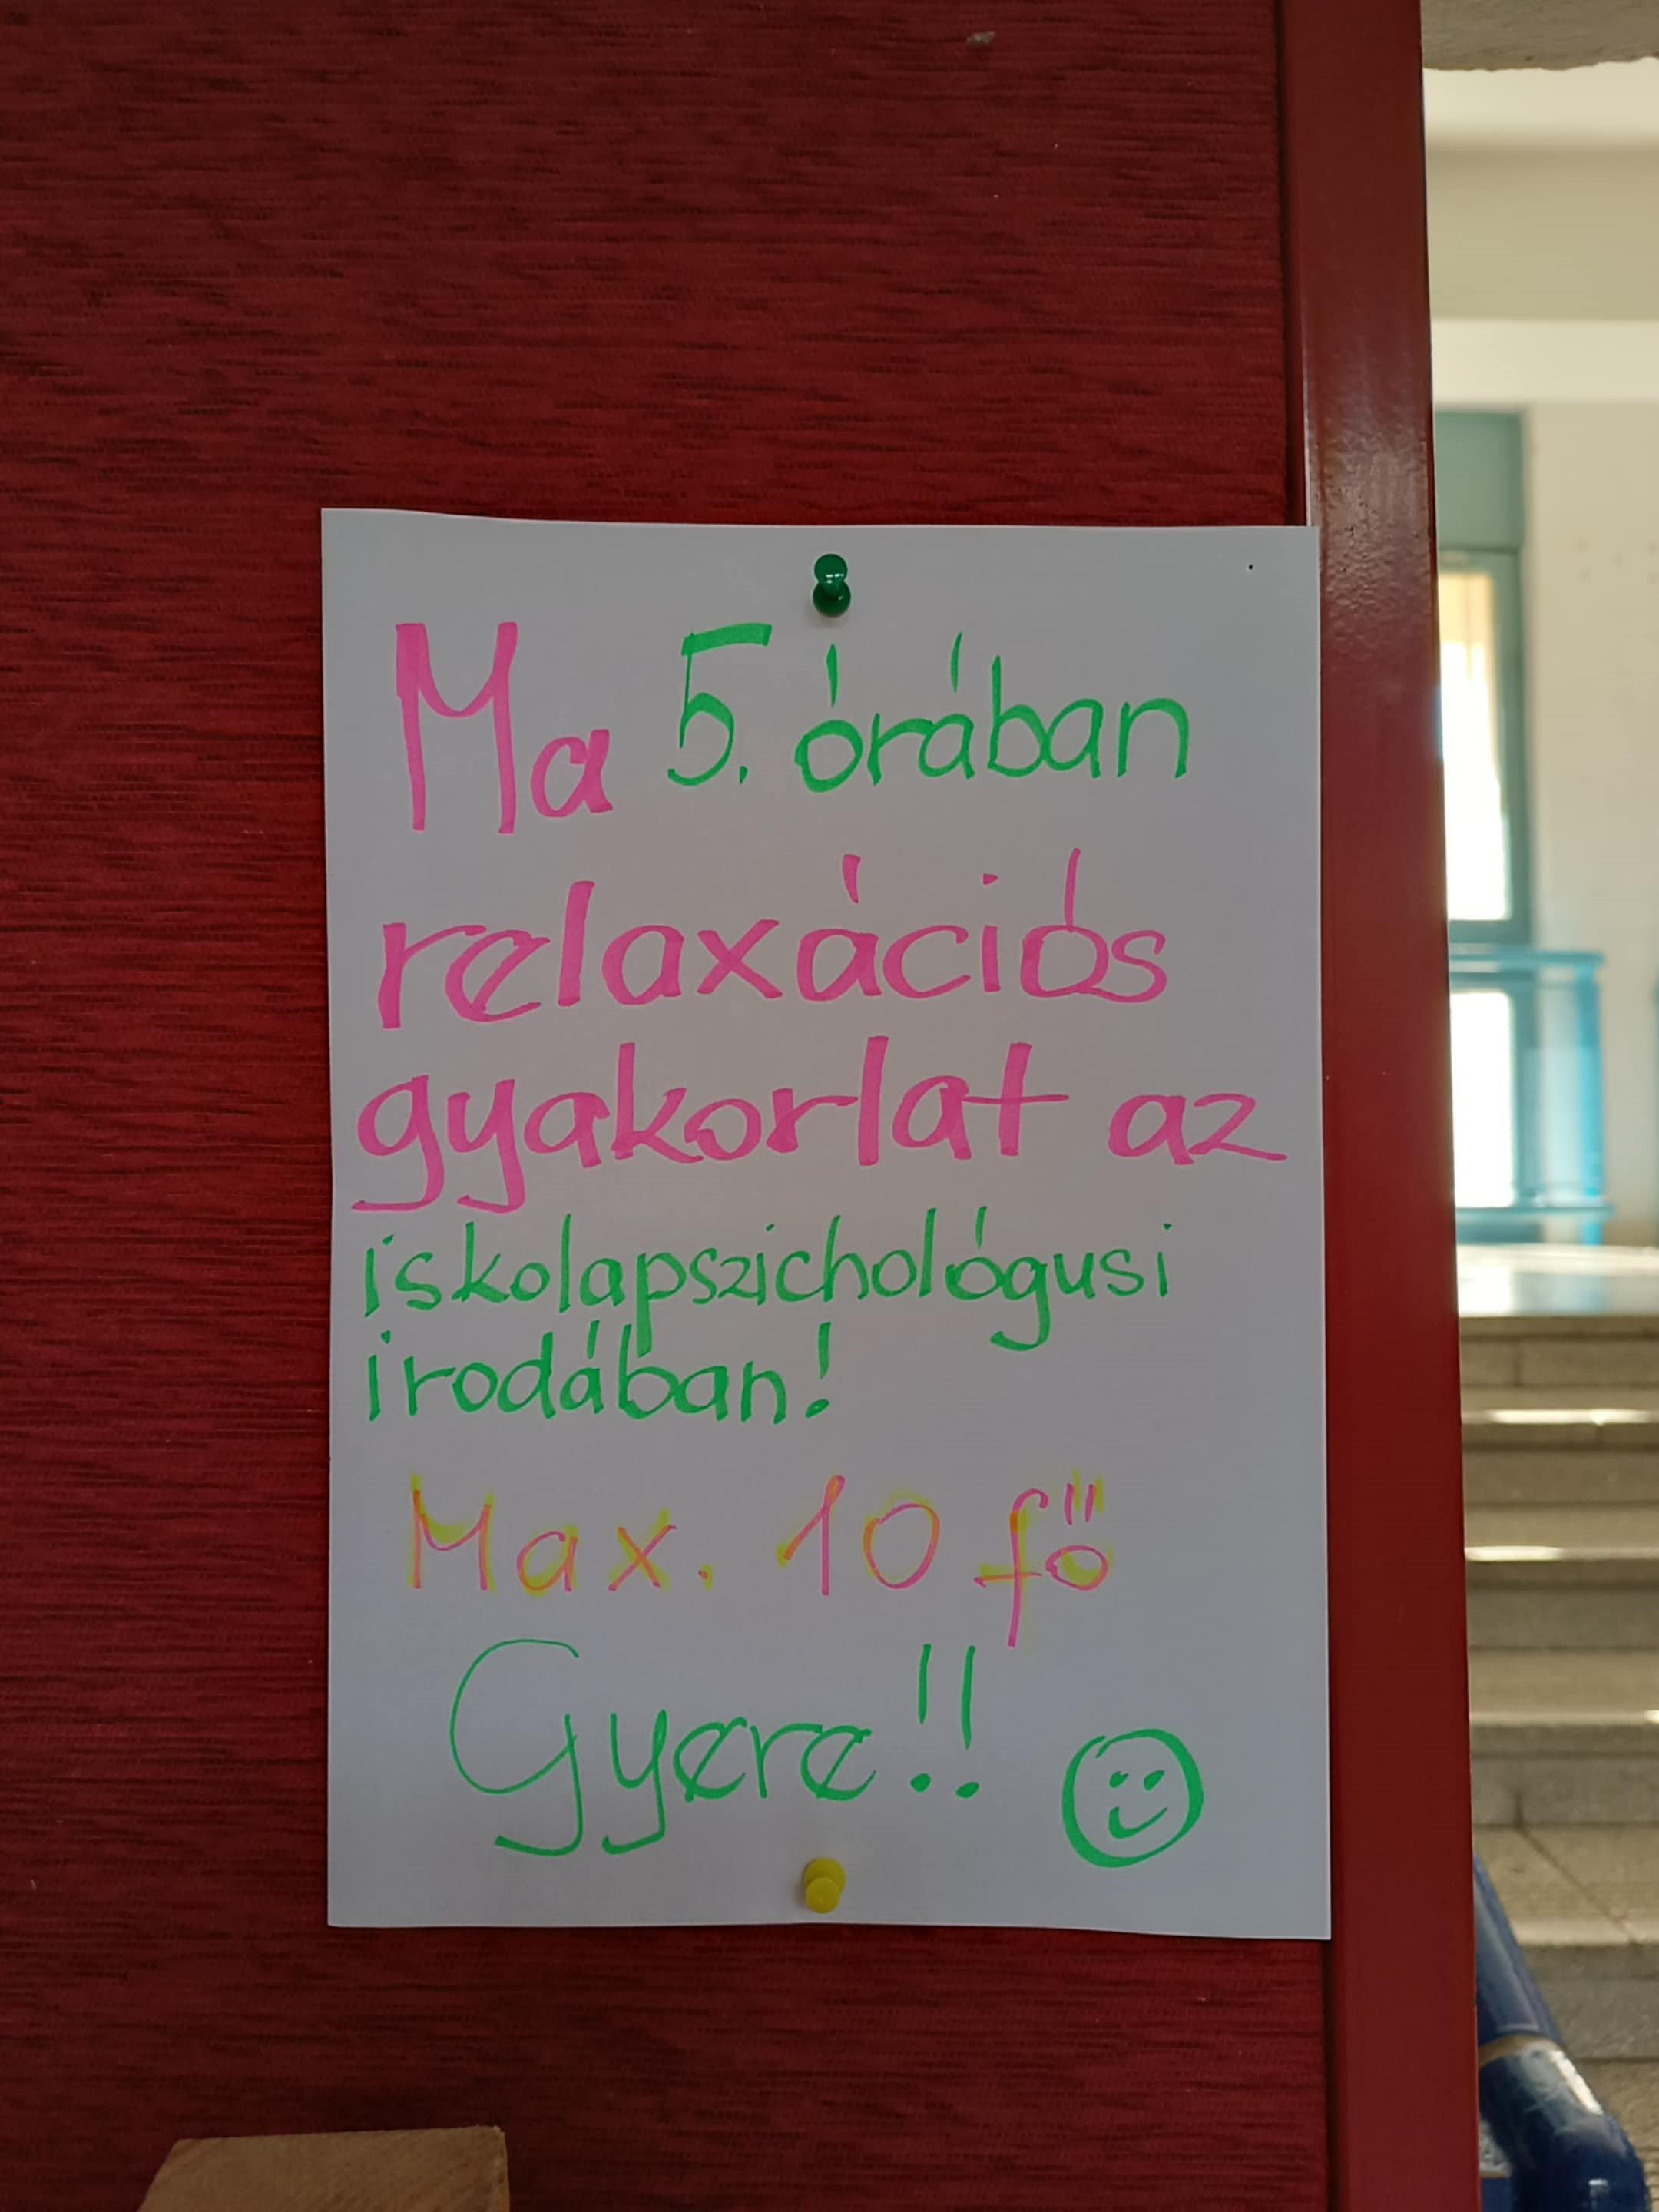 Ma 5. órában
relaxációs
gyakorlat az
iskolapszichológusi
irodában!
Max. 10 fő
Gyere!!